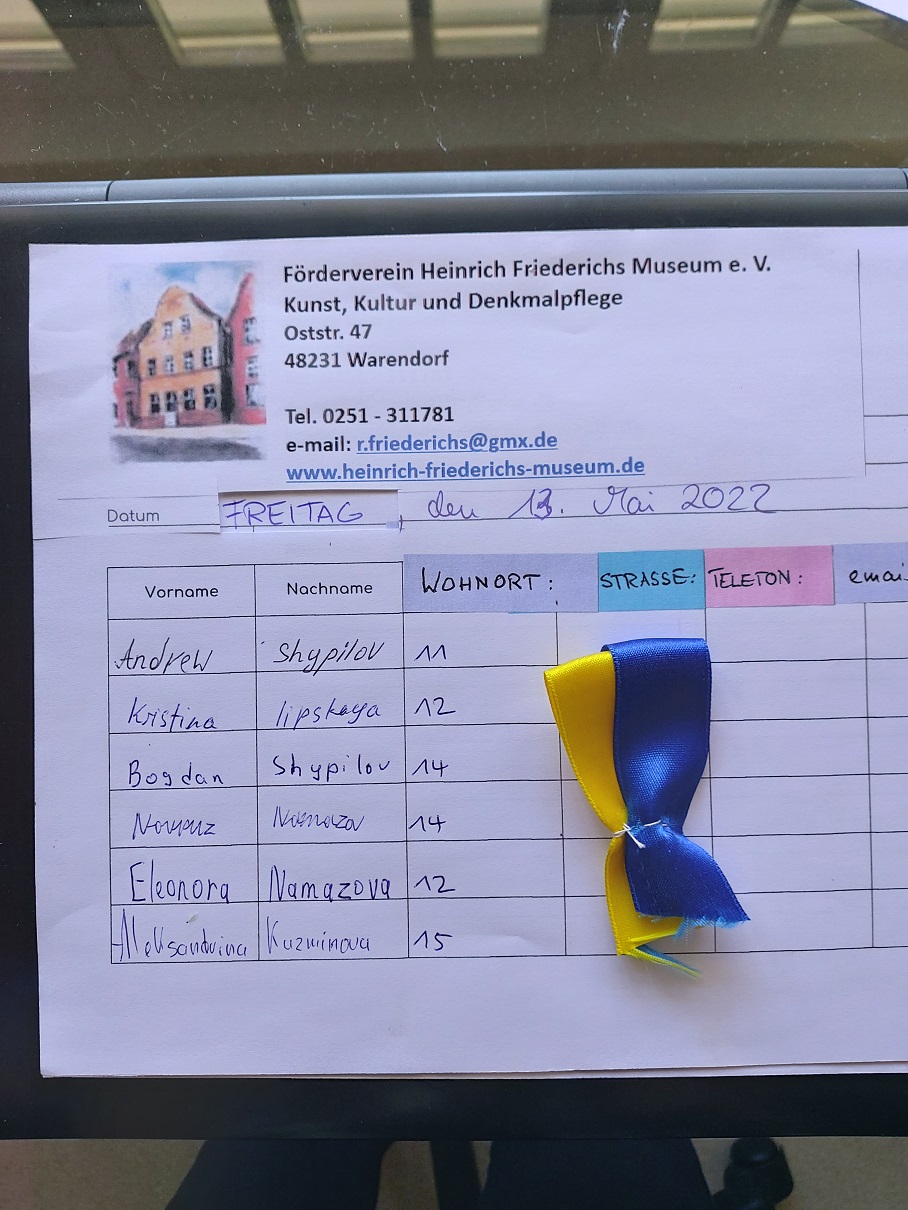 Förderverein Heinrich Friederichs Museum e. V.
Kunst, Kultur und Denkmalpflege
Oststr. 47
48231 Warendorf
Tel. 0251 - 311781
e-mail: r.friederichs@gmx.de
www.heinrich-friederichs-museum.de
Datum FREITAG, den 13. Mai 2022
Vorname Nachname WOHNORT: STRASSE: TELETON: emai
Andrew Shypilov 11
Kristina lipskaya 12
Bogdan Shypilov 14
14
Eleonora Namazova 12
Aleksandrina Kuzminova 15